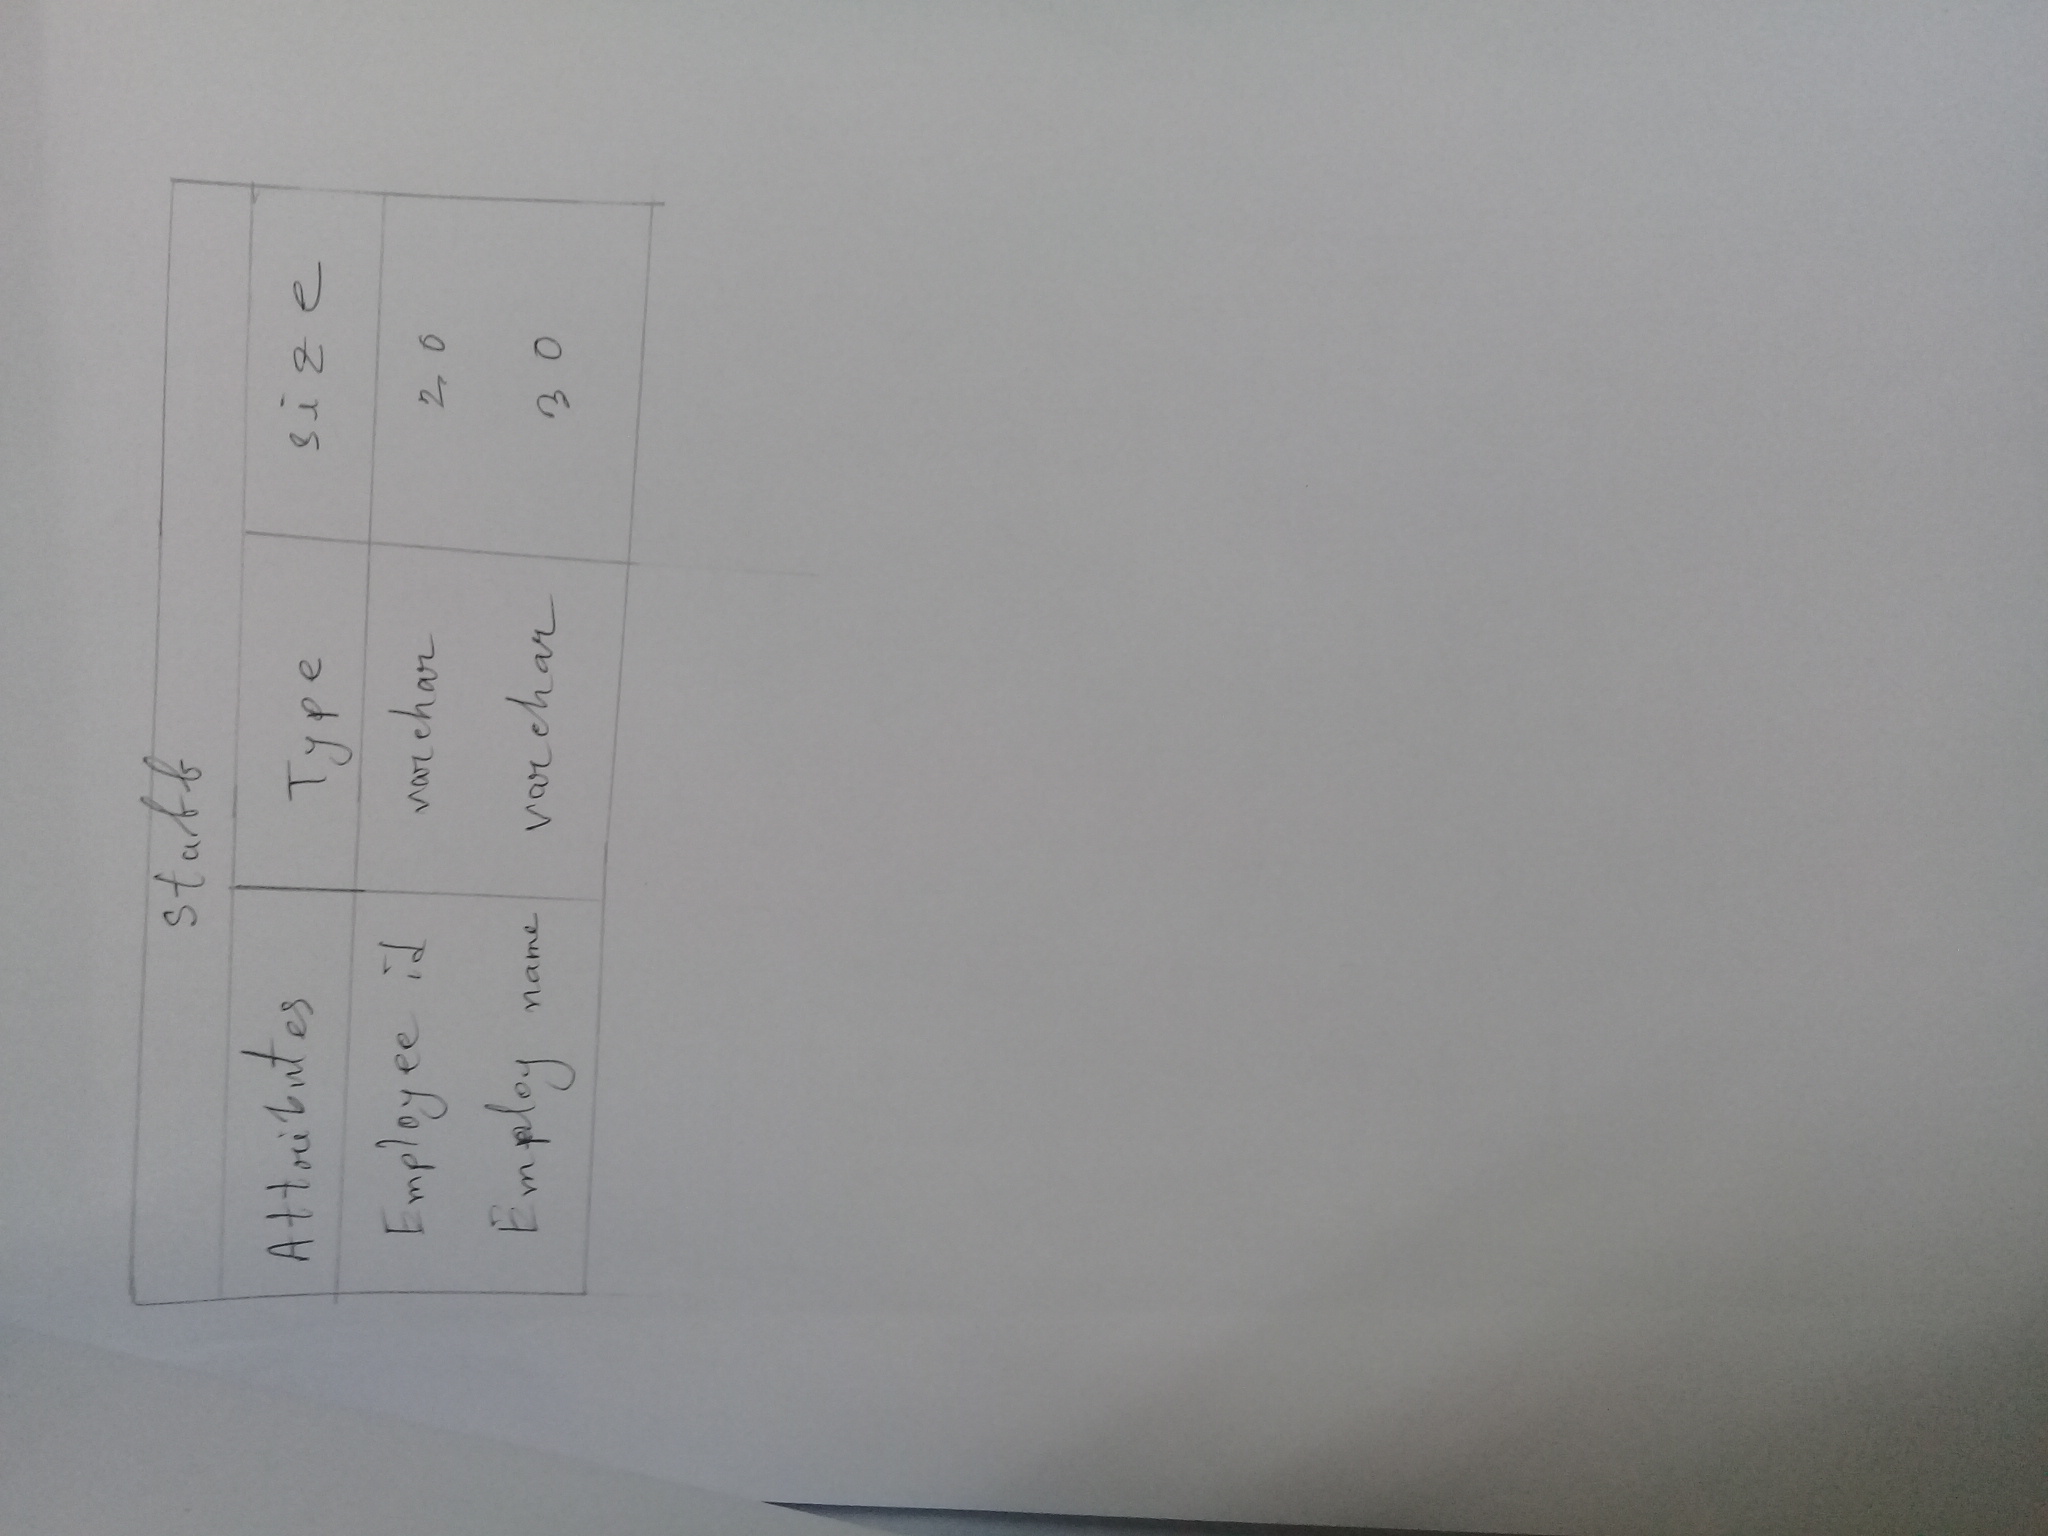 Staff
Attributes Type size
Employee id varchar 20
Employ name varchar 30